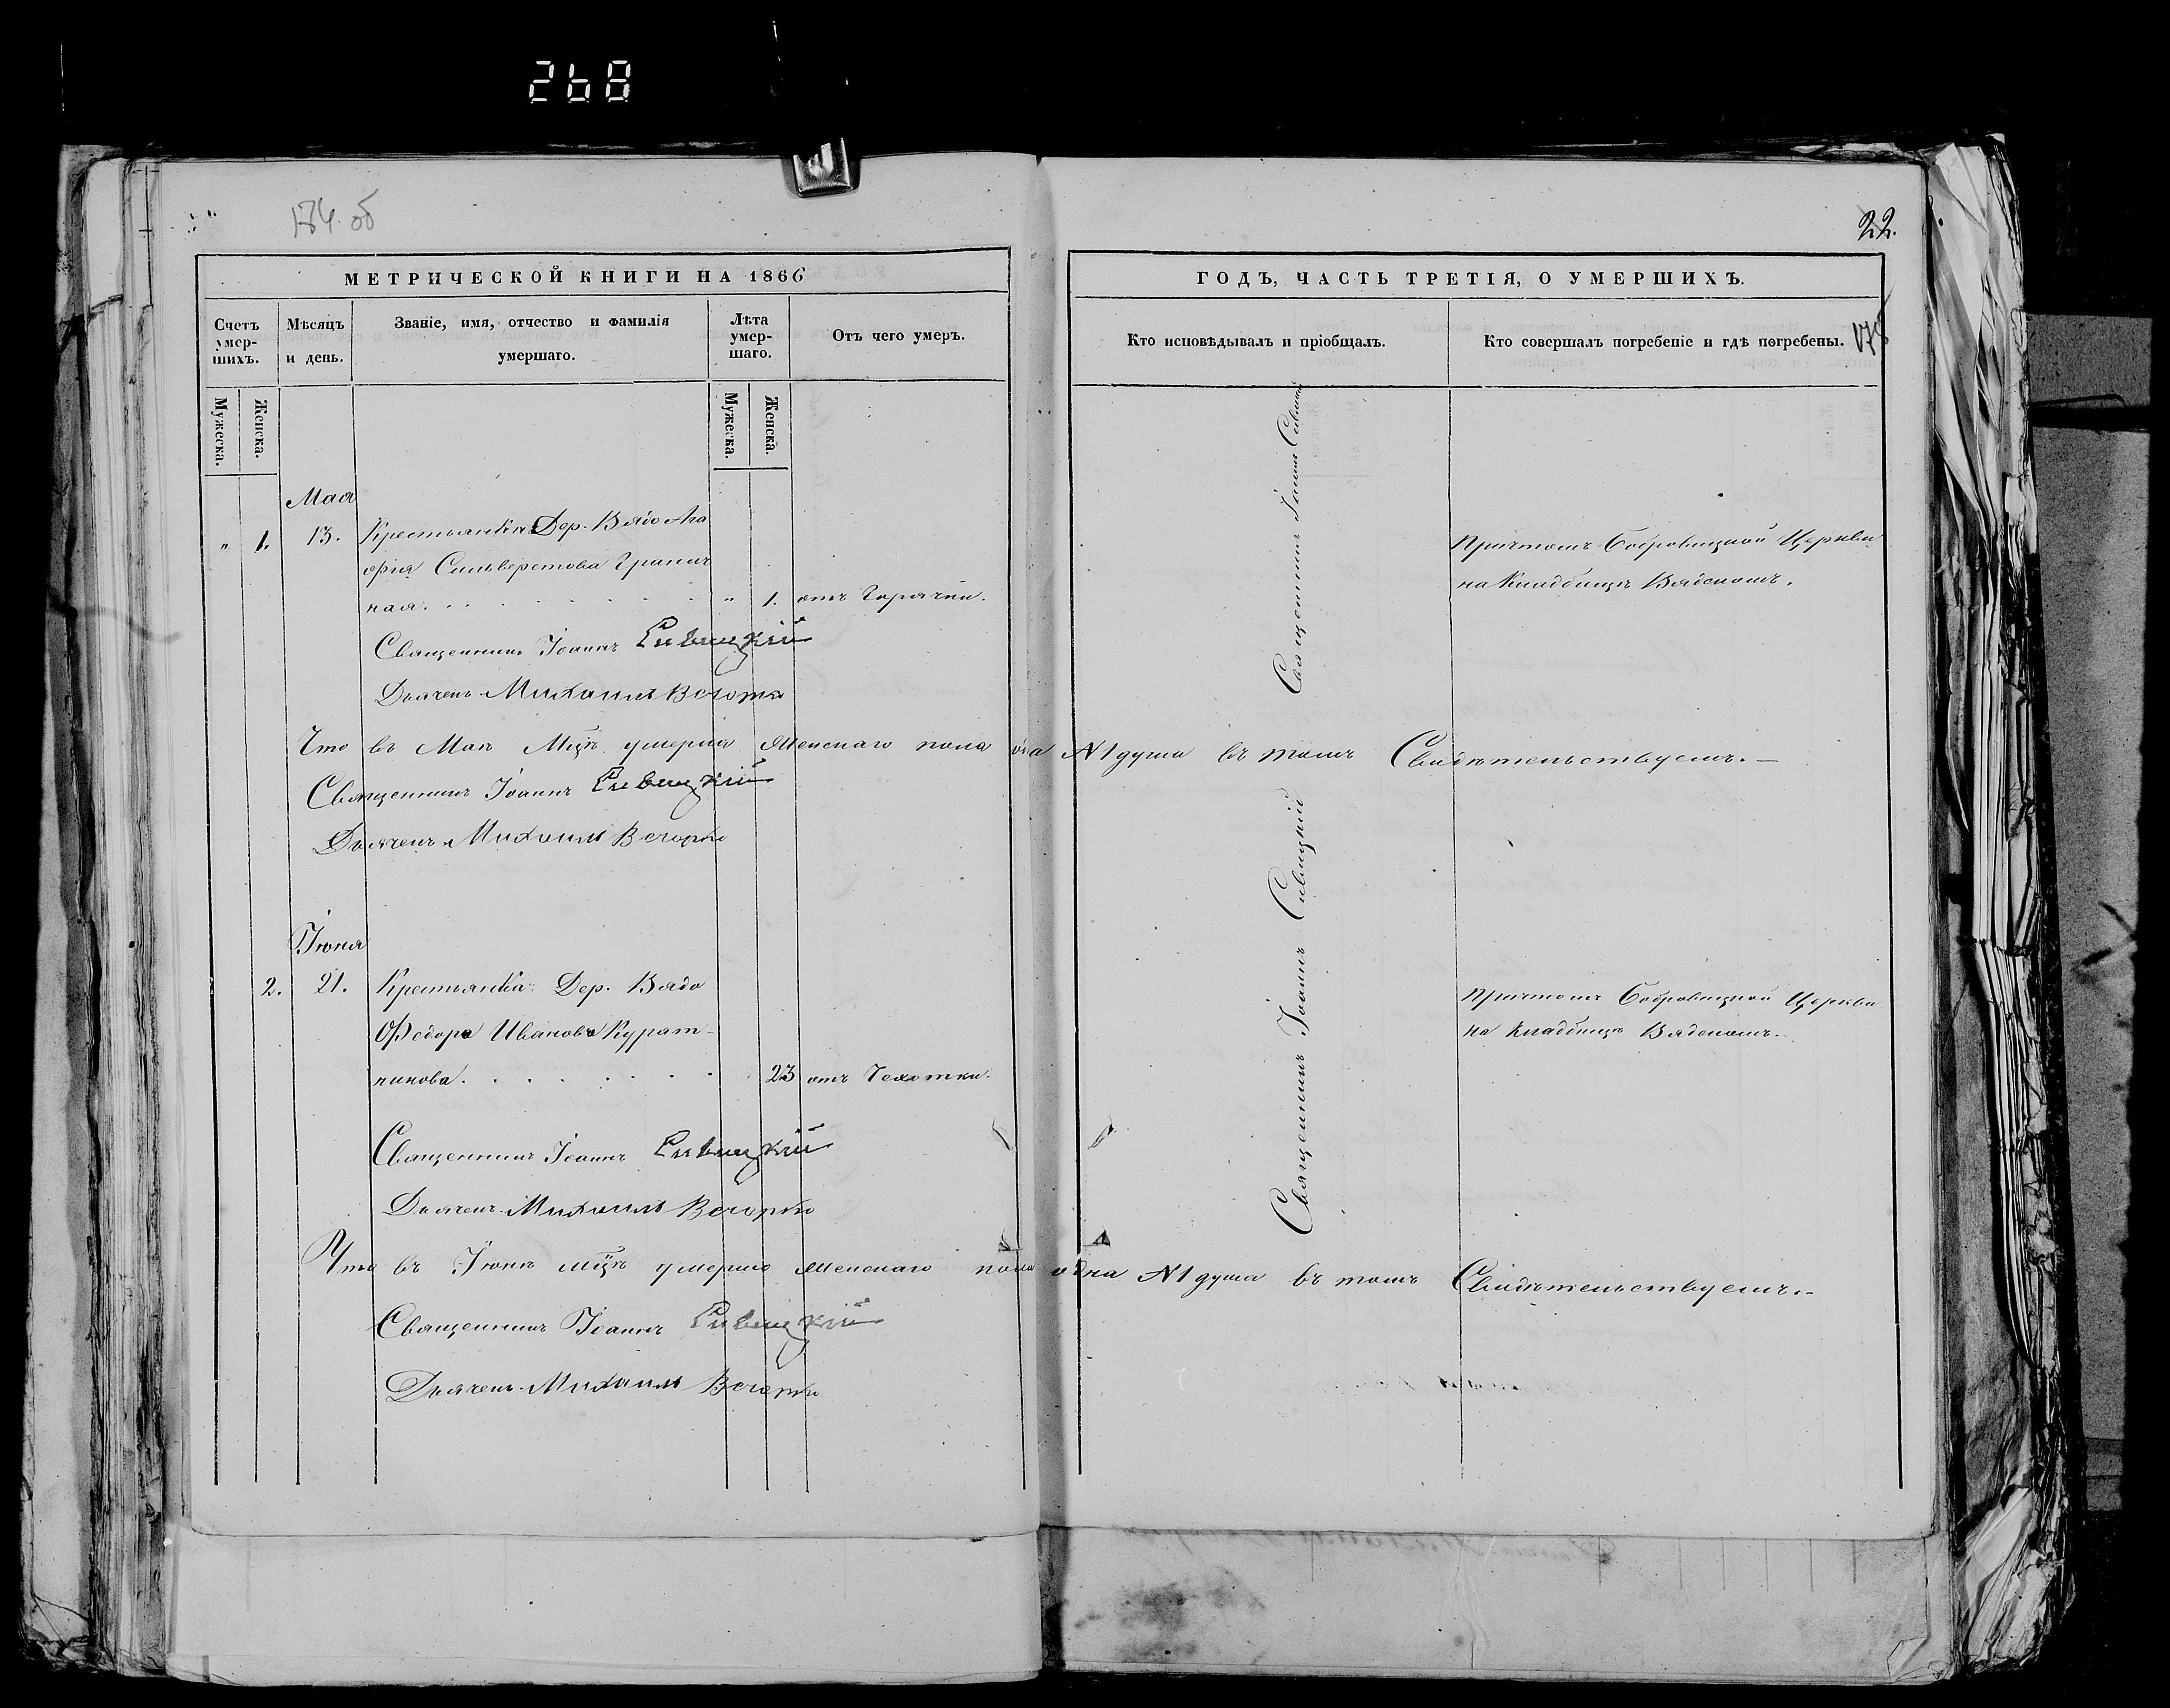 268
174. об
22.
МЕТРИЧЕСКОЙ КНИГИ НА 1866
Счетъ умер- шихъ.
Мѣсяцъ и день.
Званіе, имя, отчество и фамилія умершаго.
Лѣта умер- шаго.
Отъ чего умеръ.
Мужеска.
Женска.
Мужеска.
Женска.
Мая
" 1. 13. Крестьянка Дер. Вядо Ага
фія Сильверстова Гранич
ная. " 1. отъ Горячки.
Священникъ Іоаннъ Сивицкій
Дьячекъ Михаилъ Вечорко
Что въ Маѣ Мцѣ умерла женскаго пола одна №1 душа въ томъ Свидѣтельствуемъ. —
Священникъ Іоаннъ Сивицкій
Дьячекъ Михаилъ Вечорко
Іюня
2. 21. Крестьянка Дер. Вядо
Федора Иванова Курат-
никова. 23 отъ Чехотки.
Священникъ Іоаннъ Сивицкій
Дьячекъ Михаилъ Вечорко
Что въ Іюнѣ мцѣ умерло женскаго пола одна №1 душа въ томъ Свидѣтельствуемъ. -
Священникъ Іоаннъ Сивицкій
Дьячекъ Михаилъ Вечорко
ГОДЪ, ЧАСТЬ ТРЕТІЯ, О УМЕРШИХЪ.
Кто исповѣдывалъ и пріобщалъ.
Кто совершалъ погребеніе и гдѣ погребены.
Священникъ Іоаннъ Сивицкій
Причтомъ Бобровицкой Церкви
на Кладбищѣ Вядскомъ.
Священникъ Іоаннъ Сивицкій
Причтомъ Бобровицкой Церкви
на Кладбищѣ Вядскомъ.